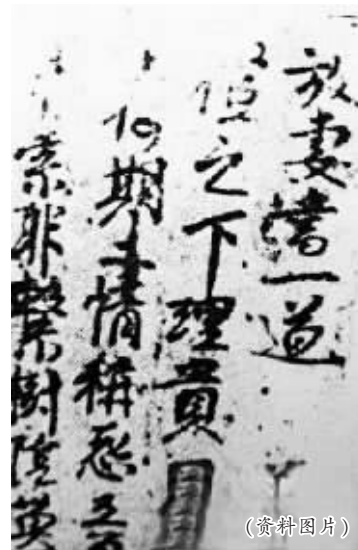 放妻書一道
之下理貴
期二情稱怨
索非繫樹陰莫
(资料图片)